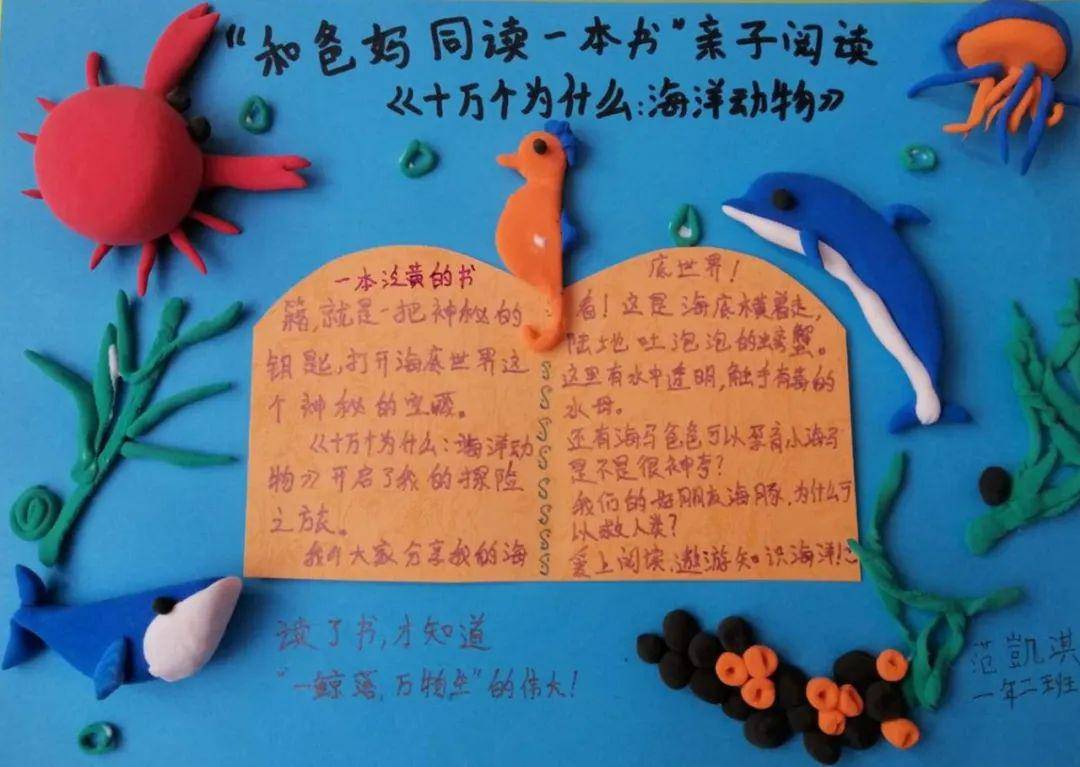 “和爸妈同读一本书”亲子阅读
《十万个为什么:海洋动物》
一本泛黄的书
籍,就是一把神秘的
钥匙,打开海底世界这
个神秘的宝藏。
《十万个为什么:海洋动
物》开启了我的探险
之旅。
我们大家分享我的海
底世界!
看!这是海底横着走,
陆地吐泡泡的螃蟹。
这里有水中透明,触手有毒的
水母。
还有海马爸爸可以孕育小海马
是不是很神奇?
我们的好朋友海豚,为什么可
以救人类?
爱上阅读,遨游知识海洋!
读了书,才知道
“一鲸落,万物生”的伟大!
范凯淇
一年二班